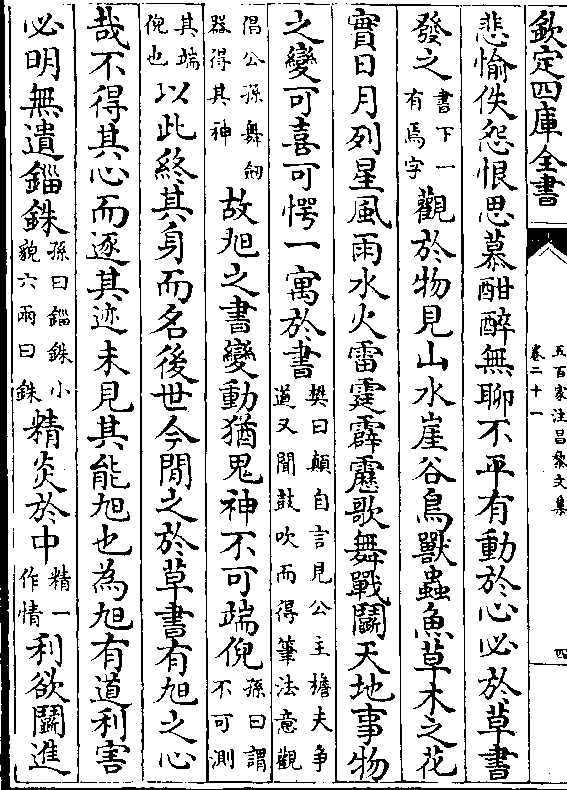 欽定四庫全書
五百家注昌黎文集
卷二十一
四
悲愉佚怨恨思慕酣醉無聊不平有動於心必於草書
發之書下一有焉字觀於物見山水崖谷鳥獸蟲魚草木之花
實日月列星風雨水火雷霆霹靂歌舞戰鬬天地事物
之變可喜可愕一寓於書樊曰顛自言見公主檐夫爭道又聞鼓吹而得筆法意觀
倡公孫舞劒器得其神故旭之書變動猶鬼神不可端倪孫曰謂不可測
其端倪也以此終其身而名後世今閒之於草書有旭之心
哉不得其心而逐其迹未見其能旭也為旭有道利害
必明無遺錙銖孫曰錙銖小貌六兩曰銖精炎於中精一作情利欲鬬進